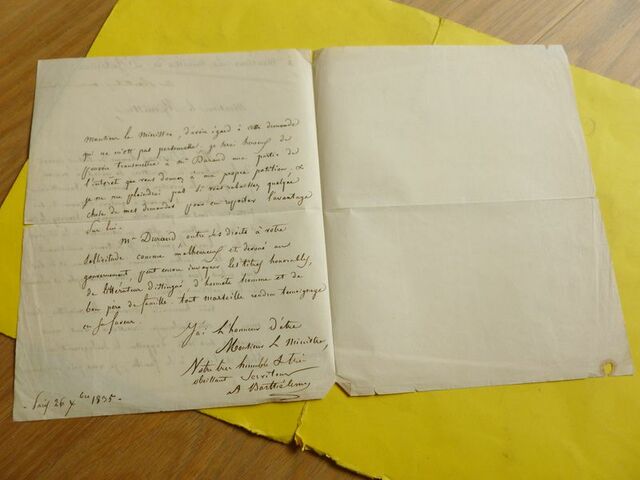 Monsieur le Ministre, d'avoir égard à cette demande
qui ne m'est pas personnelle, je serai heureux de
pouvoir transmettre à Mr Durand une partie de
l'intérêt que vous donnez à ma propre pétition, &
je ne me plaindrai pas si vous rabattez quelque
chose de mes demandes pour en reporter l'avantage
sur lui.
Mr Durand outre ses droits à votre
sollicitude comme malheureux et dévoué au
gouvernement, peut encore invoquer les titres honorables,
de littérateur distingué, d'honnête homme et de
bon père de famille tout marseille rendra temoignage
en sa faveur.
J'ai l'honneur d'être
Monsieur le Ministre,
Votre très humble & très
obéissant Serviteur
A Barthélemy
Paris 26 Xbre 1835.